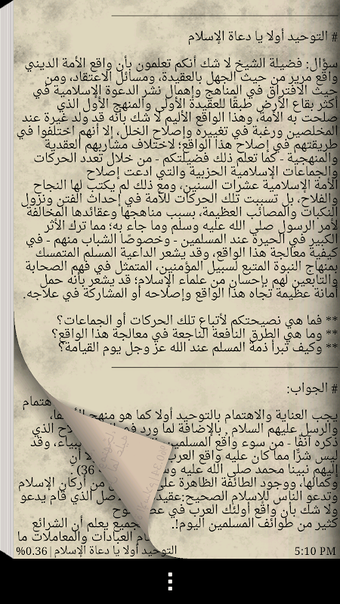 # التوحيد أولا يا دعاة الإسلام
سؤال: فضيلة الشيخ لا شك أنكم تعلمون بأن واقع الأمة الديني
واقع مرير من حيث الجهل بالعقيدة، ومسائل الاعتقاد، ومن
حيث الافتراق في المناهج وإهمال نشر الدعوة الإسلامية في
أكثر بقاع الأرض طبقًا للعقيدة الأولى والمنهج الأول الذي
صلحت به الأمة، وهذا الواقع الأليم لا شك بأنه قد ولد غيرة عند
المخلصين ورغبة في تغييره وإصلاح الخلل، إلا أنهم اختلفوا في
طريقتهم في إصلاح هذا الواقع؛ لاختلاف مشاربهم العقدية
والمنهجية - كما تعلم ذلك فضيلتكم - من خلال تعدد الحركات
والجماعات الإسلامية الحزبية والتي ادعت إصلاح
الأمة الإسلامية عشرات السنين، ومع ذلك لم يكتب لها النجاح
والفلاح، بل تسببت تلك الحركات للأمة في إحداث الفتن ونزول
النكبات والمصائب العظيمة، بسبب مناهجها وعقائدها المخالفة
لأمر الرسول صلى الله عليه وسلم وما جاء به؛ مما ترك الأثر
الكبير في الحيرة عند المسلمين - وخصوصًا الشباب منهم - في
كيفية معالجة هذا الواقع، وقد يشعر الداعية المسلم المتمسك
بمنهاج النبوة المتبع لسبيل المؤمنين، المتمثل في فهم الصحابة
والتابعين لهم بإحسان من علماء الإسلام؛ قد يشعر بأنه حمل
أمانة عظيمة تجاه هذا الواقع وإصلاحه أو المشاركة في علاجه.
** فما هي نصيحتكم لأتباع تلك الحركات أو الجماعات؟
** وما هي الطرق النافعة الناجعة في معالجة هذا الواقع؟
** وكيف تبرأ ذمة المسلم عند الله عز وجل يوم القيامة؟
# الجواب:
يجب العناية والاهتمام بالتوحيد أولا كما هو منهج
والرسل عليهم السلام . بالإضافة لما ورد في
ذكره آنفًا - من سوء واقع المسلمين
ليس شرًا مما كان عليه واقع العرب
إليهم نبينا محمد صلى الله عليه
وكمالها، ووجود الطائفة الظاهرة من أركان الإسلام
وتدعو الناس للإسلام الصحيح: الذي قام يدعو
ولا شك بأن واقع أولئك العرب في
كثير من طوائف المسلمين اليوم!. جميع يعلم أن الشرائع
العبادات والمعاملات ما
%0.36 | التوحيد أولا يا دعاة الإسلام 5:10 PM